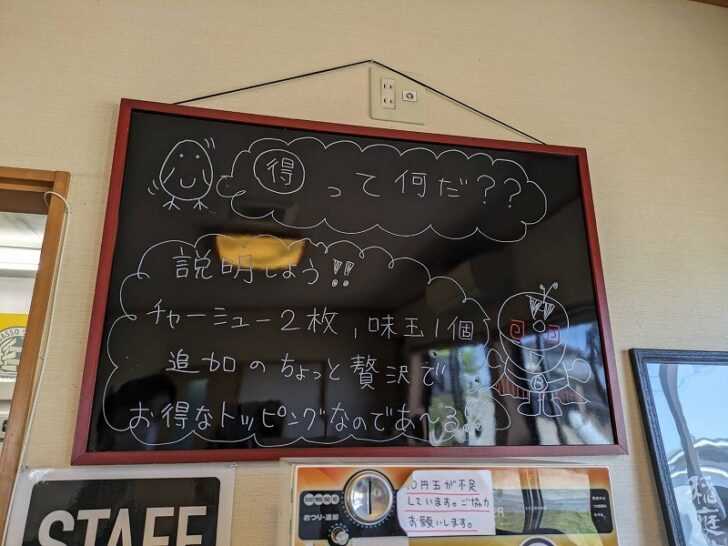 得って何だ??
説明しよう!!
チャーシュー2枚,味玉1個
追加のちょっと贅沢で
お得なトッピングなのであ〜る!!
STAFF
100 100 50 10
おつり・返却
10円玉が不足
しています。ご協力
お願いします。
稲庭